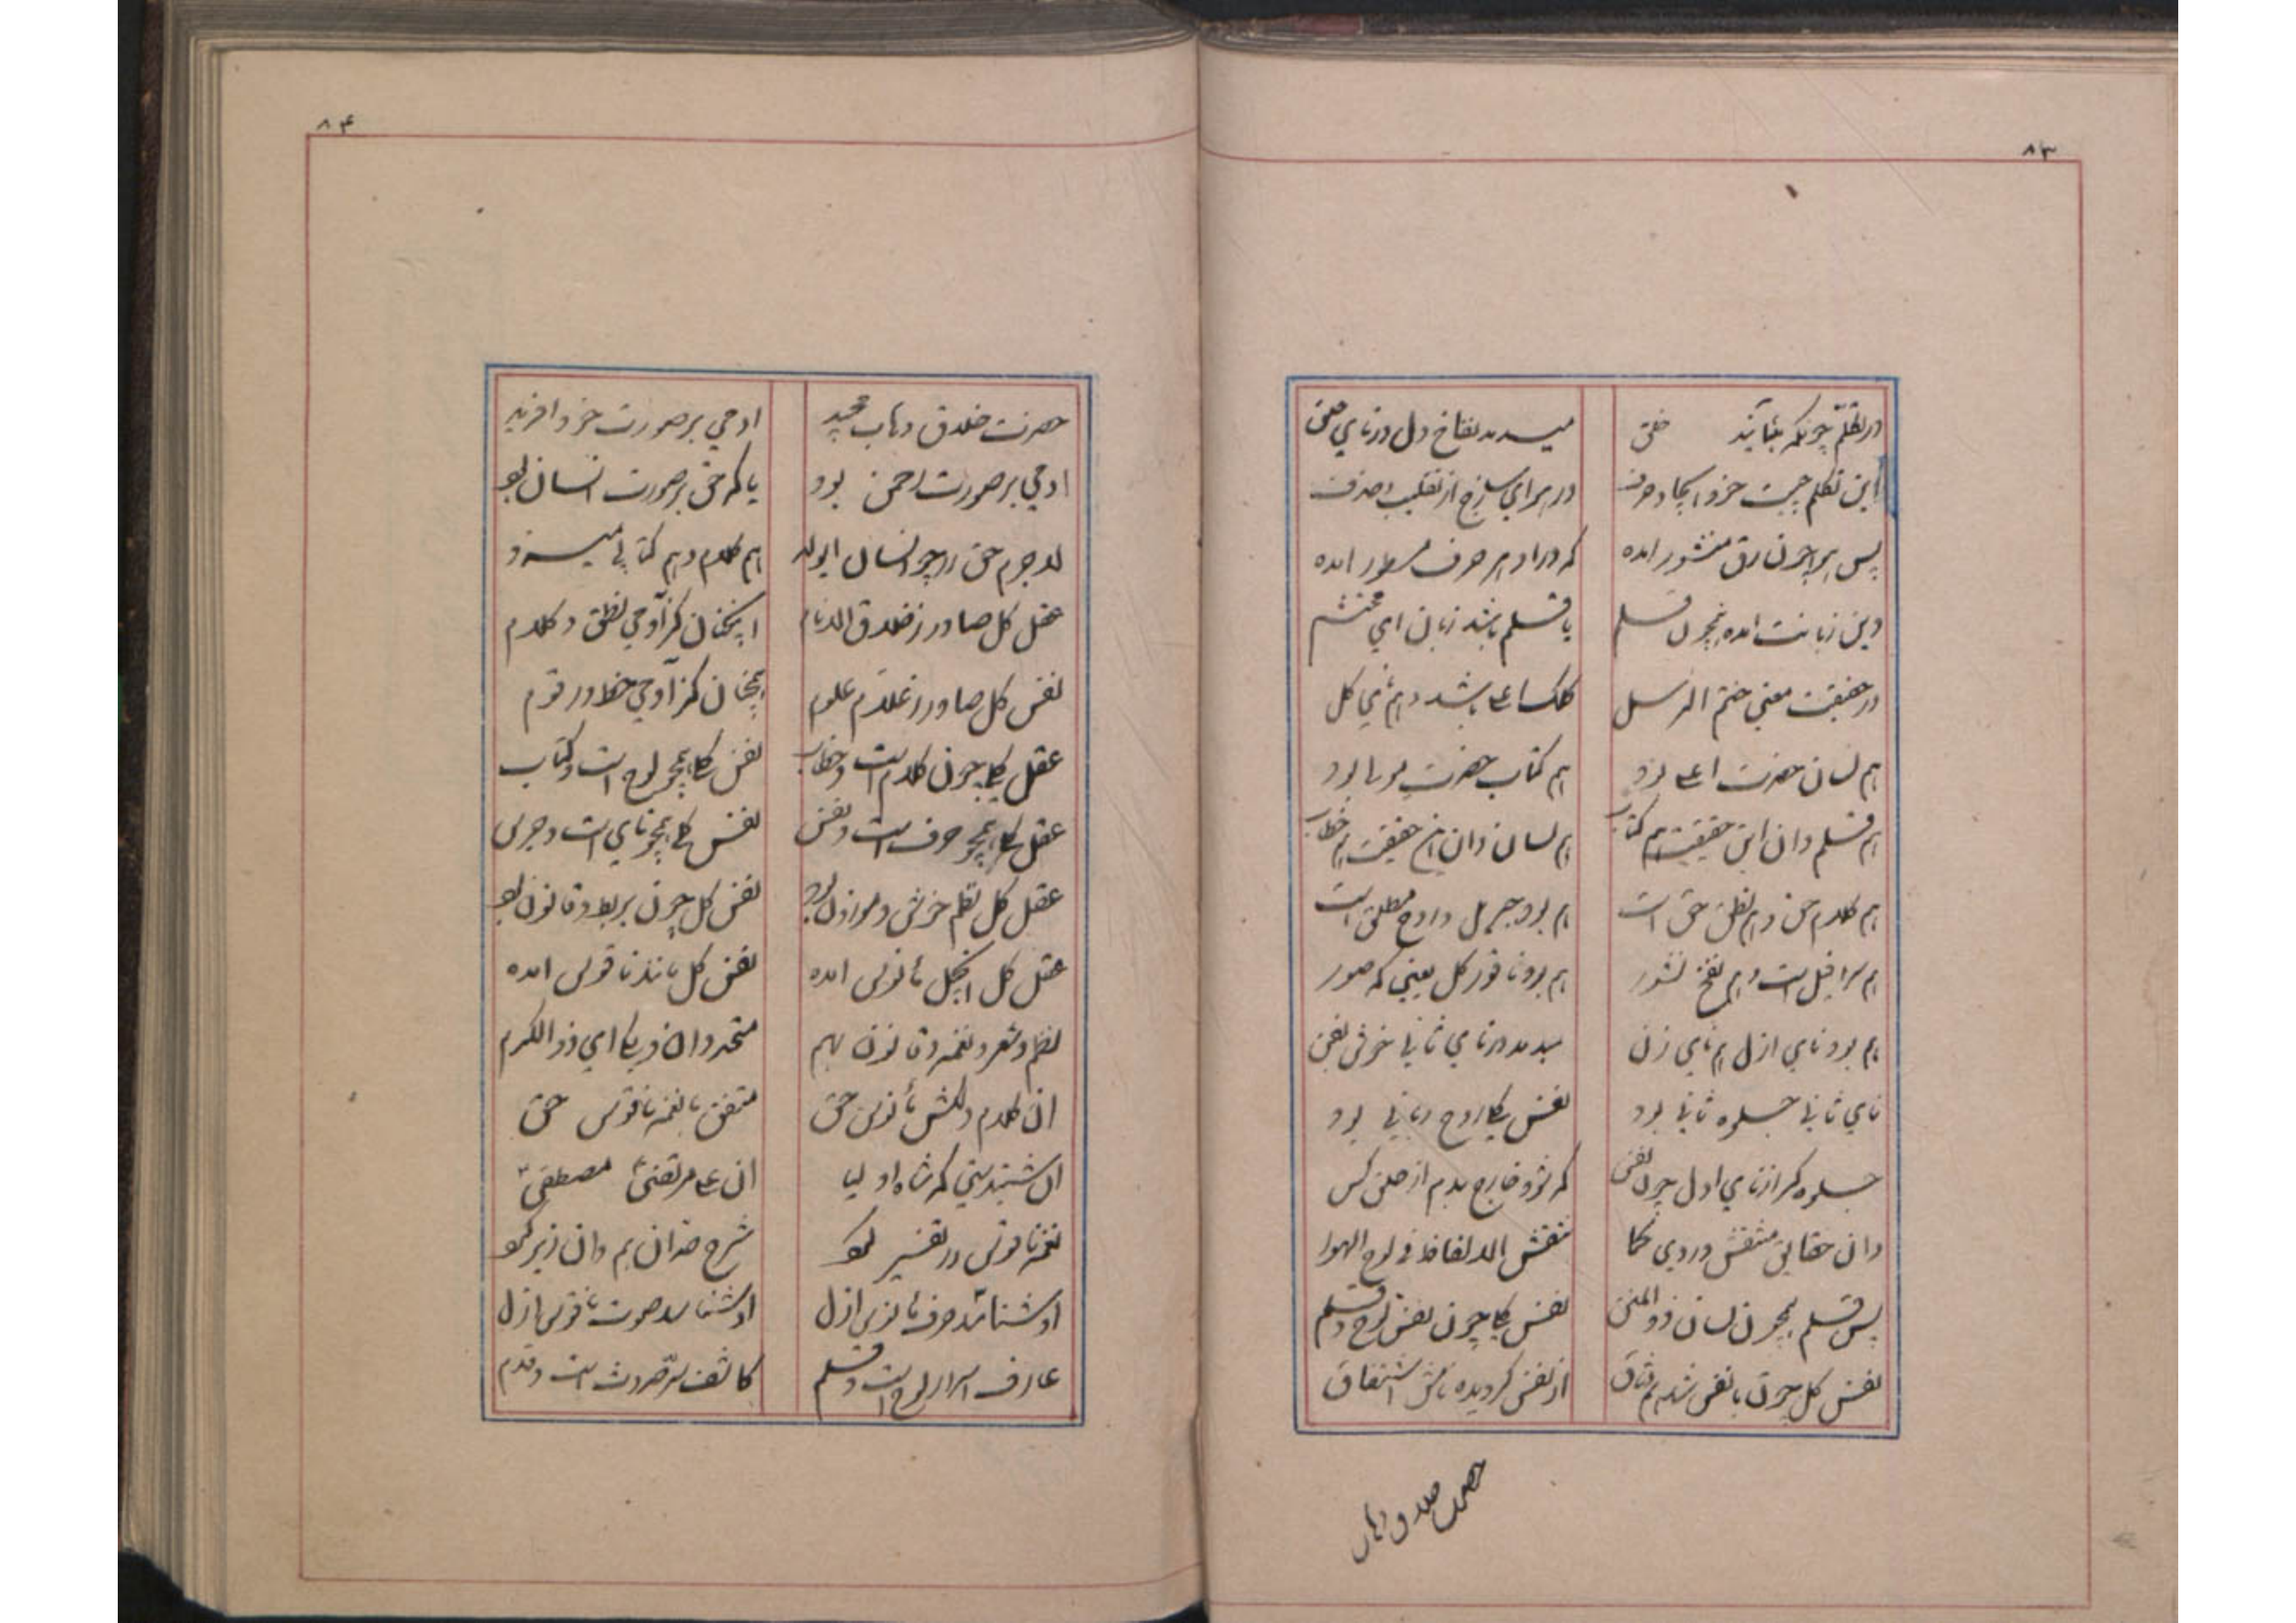 ۸۳
در تکلم چونکه بنمایند خلق
میدمد نفاخ دل در نای حلق
این تکلم چیست جز و ایجاد حرف
در هوای ساذج از تقلیب صرف
پس هوا چون رق منشور امده
که در او هر حرف مسطور امده
وین زبانت امده همچون قلم
یا قلم باشد زبان ای محتشم
در حقیقت معنی ختم الرسل
کلک اعلی باشد و هم نای کل
هم لسان حضرت اعلی بود
هم کتاب حضرت مولا بود
هم قلم دان این حقیقت هم کتاب
هم لسان دان این حقیقت هم خطاب
هم کلام حق و هم نطق حق است
هم بود جبریل و روح مطلق است
هم سرافیل است و هم نفخ نشور
هم بود ناقور کل یعنی که صور
هم بود نای ازل هم نای زن
میدمد در نای ثانی خوش نفن
نای ثانی جلوه ثانی بود
نفس کل روح ربانی بود
جلوه کر از نای اول چون نفس
که شود خارج بدم از حلق کس
وان حقایق منتقش در وی کما
تنقش الالفاظ فی لوح الهوا
پس قلم همچون لسان ذو المنن
نفس کل چون نفس لوح و قلم
نفس کل چون با نفس شد هم وثاق
از نفس کردیده نامش اشتقاق
حضرت خلاق وهاب
۸۴
حضرت خلاق وهاب مجید
ادمی بر صورت خود افرید
ادمی بر صورت رحمن بود
یا که حق بر صورت انسان بود
لاجرم حق را چو انسان ای ولد
هم کلام و هم کتابی میسزد
عقل کل صادر ز خلاق الانام
انچنان کز آدمی نطق و کلام
نفس کل صادر ز علام علوم
همچنان کز آدمی خط و رقوم
عقل کل چون کلام است و خطاب
نفس کل همچو لوح است و کتاب
عقل کل همچو حرف است و نفس
نفس کل همچو نای است و جرس
عقل کل نظم خوش و موزون بود
نفس کل چون بربط و قانون بود
عقل کل انجیل مأنوس امده
نفس کل مانند ناقوس امده
نظم و شعر و نغمه و قانون بهم
متحد دان ای ذو الکرم
ان کلام دلکش مأنوس حق
متفق با نغمه ناقوس حق
ان شنیدستی که شاه اولیا
ان علی مرتضی مصطفی
نغمه ناقوس در تفسیر
شرح هم دان زیر
او شناسد حرف مأنوس ازل
او شناسد صوت ناقوس ازل
عارف اسرار لوح است و قلم
کاشف سر حدوث است و قدم